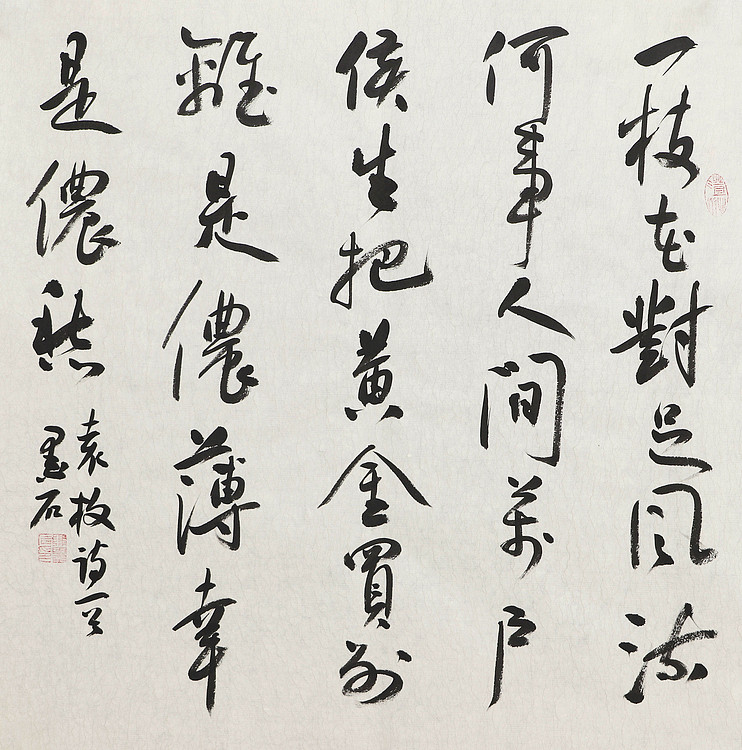 一枝花對足風流
何事人間萬戶
侯生把黄金買別
離是儂薄幸
是儂愁
袁枚诗一首
墨石